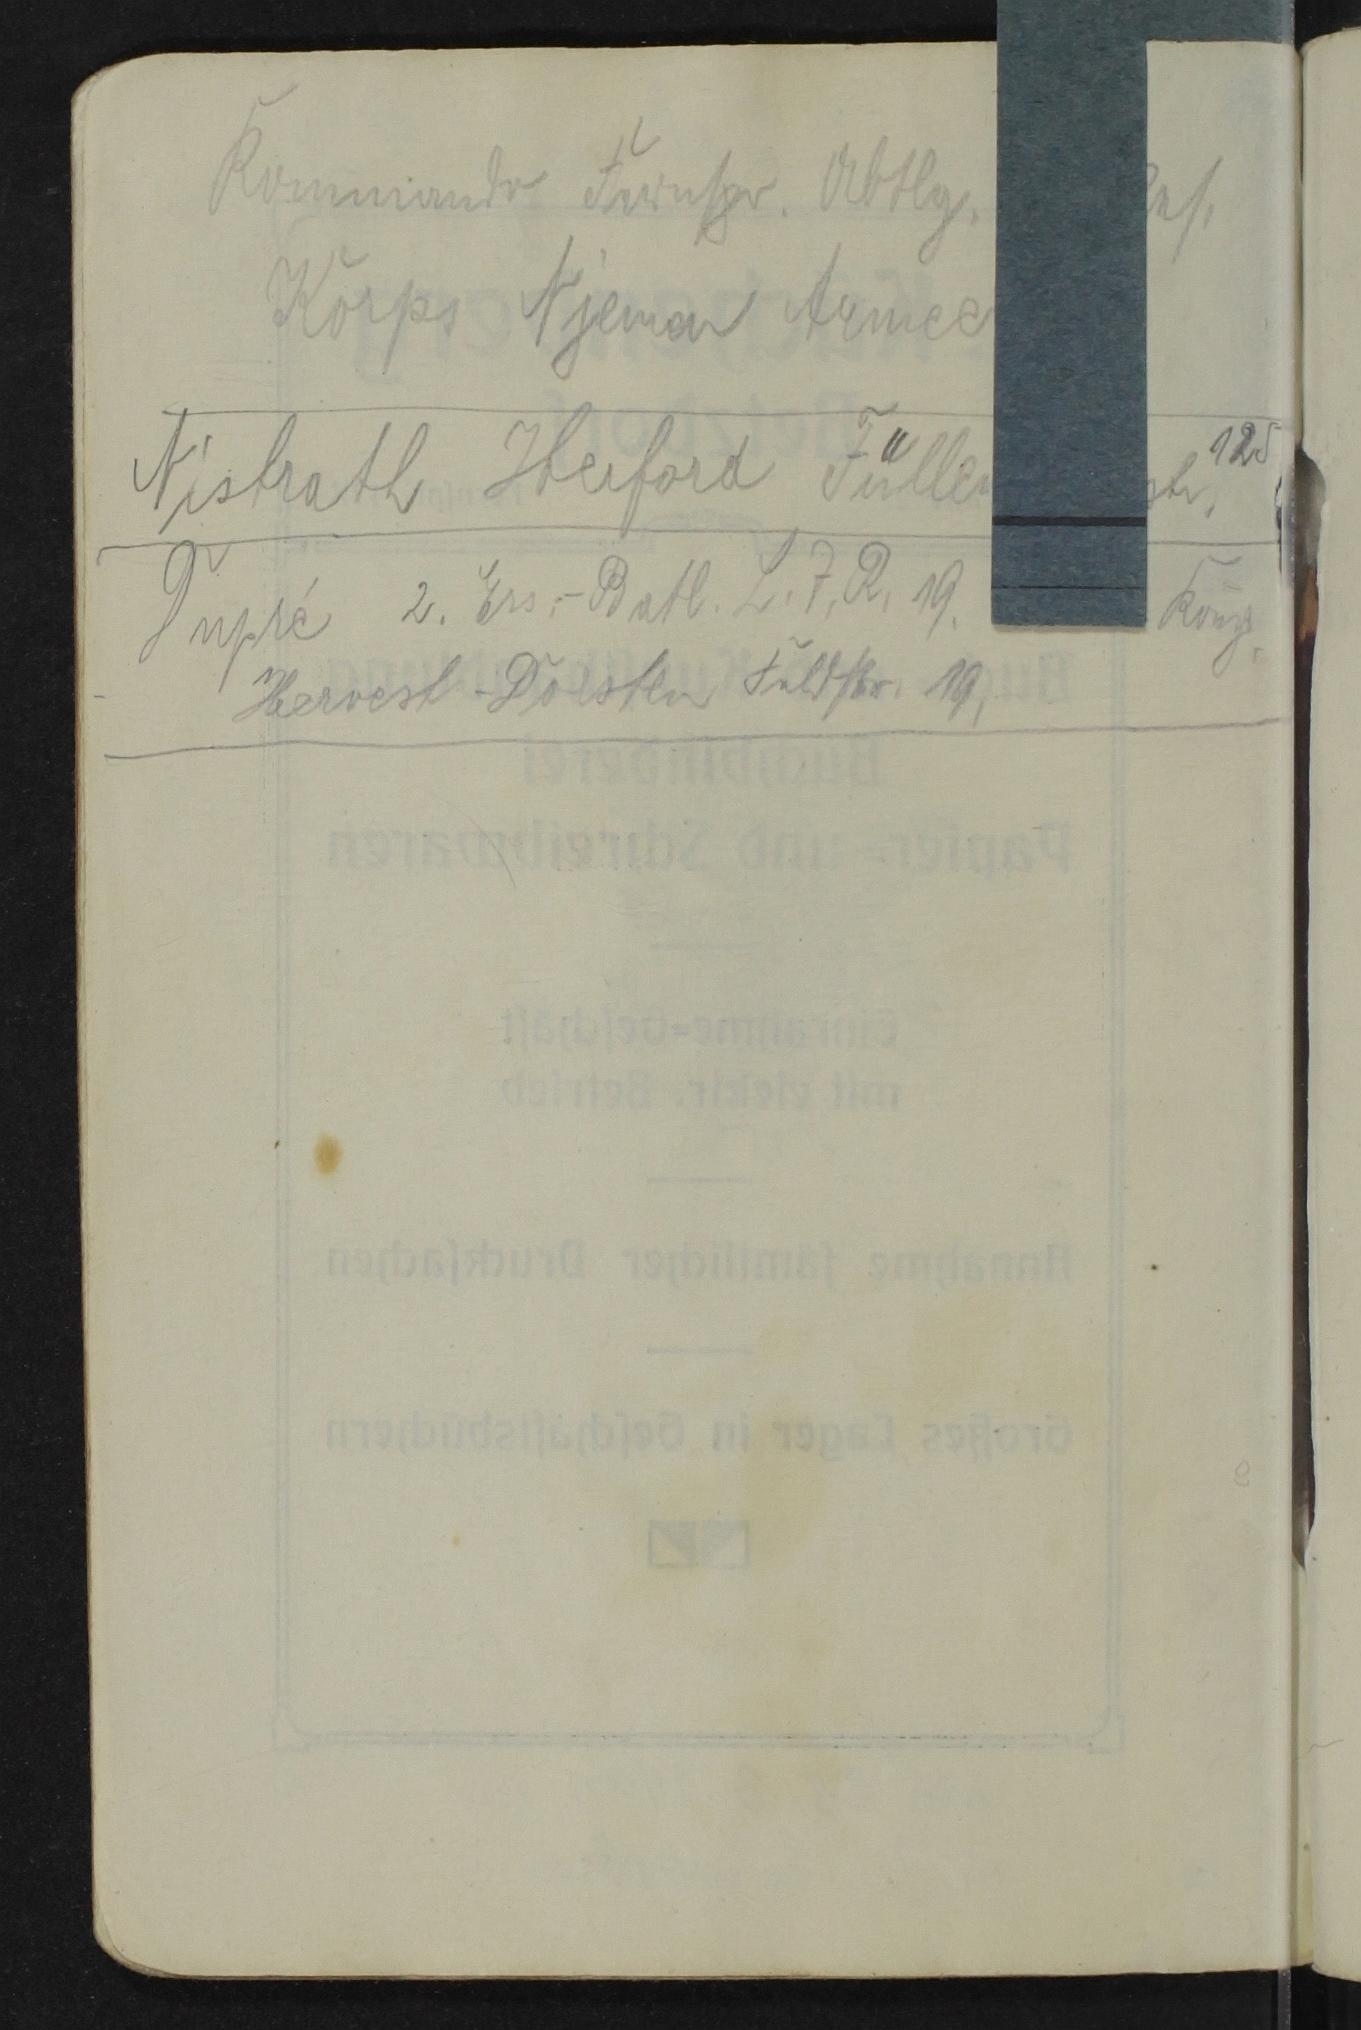 Kommando Fernspr. Abtlg. Res.
Korps Njemen Armee
Nistrath Herford Füllen str. 125
Dupré 2. Ers.-Batl. L. I. R. 19. Köng.
Hervest-Dorsten Feldstr. 19,
Betzdorf
Buch- u. Kunsthandlung
Buchbinderei
Papier- und Schreibwaren
Einrahme-Geschäft
mit elektr. Betrieb
Annahme sämtlicher Drucksachen
Großes Lager in Geschäftsbüchern